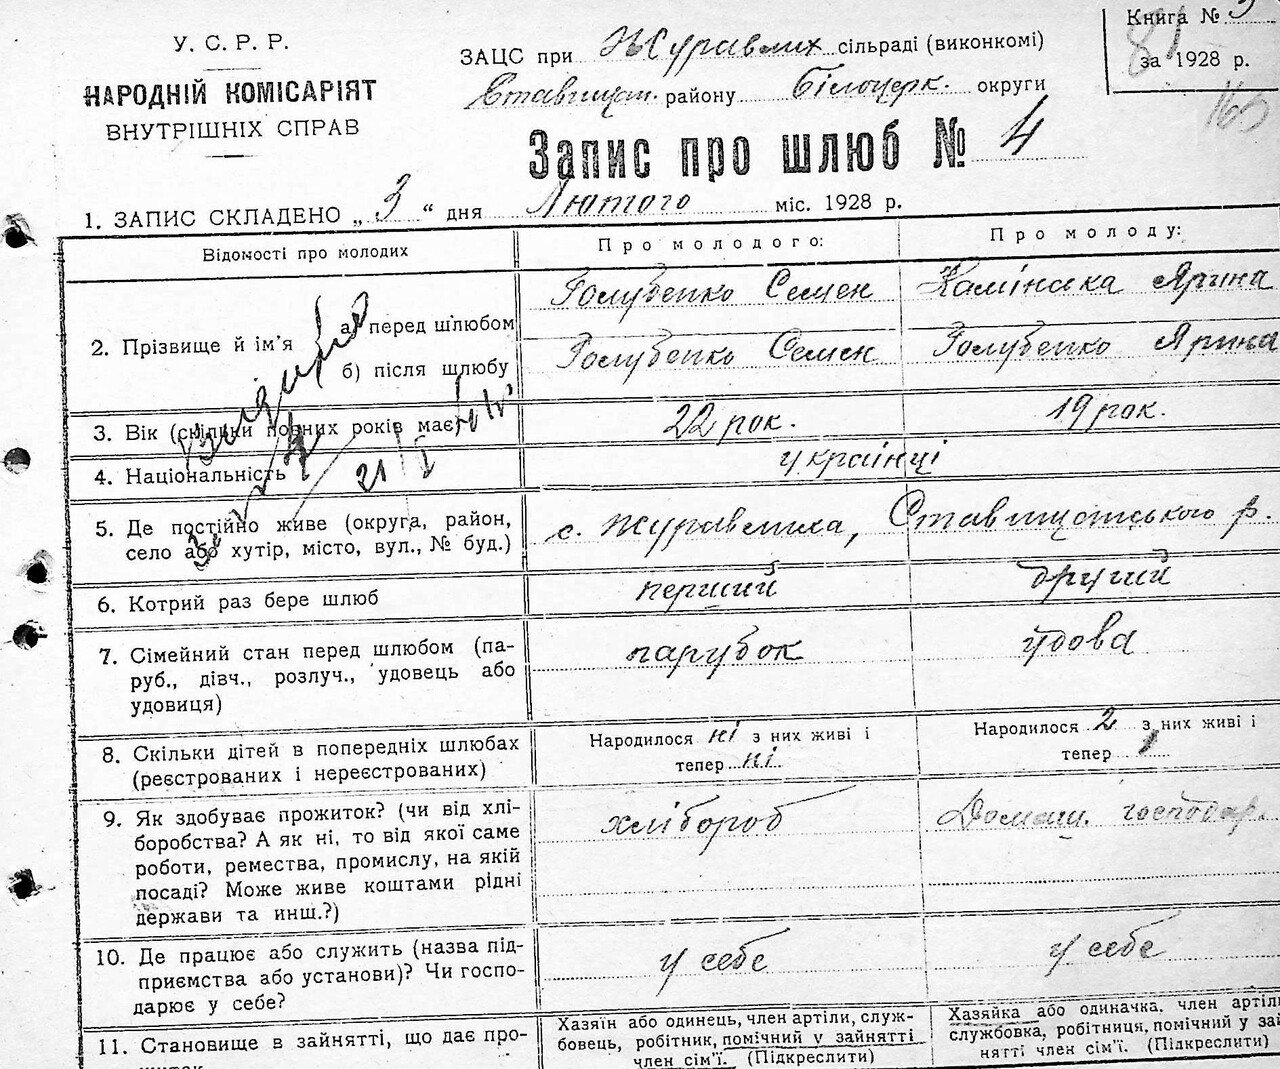 У. С. Р. Р.
НАРОДНІЙ КОМІСАРІЯТ
ВНУТРІШНІХ СПРАВ
ЗАЦС при Журавлих сільраді (виконкомі)
Ставищан. району Білоцерк. округи
Книга №
за 1928 р.
81
165
Запис про шлюб № 4
1. ЗАПИС СКЛАДЕНО „ 3 “ дня Лютого міс. 1928 р.
Відомості про молодих
Про молодого:
Про молоду:
2. Прізвище й ім’я
а) перед шлюбом
Голубенко Семен
Камінська Ярина
б) після шлюбу
Голубенко Семен
Голубенко Ярина
3. Вік (скільки повних років має)
22 рок.
19 рок.
4. Національність
українці
21
5. Де постійно живе (округа, район,
село або хутір, місто, вул., № буд.)
с. Журавлиха, Ставищанського р.
6. Котрий раз бере шлюб
перший
другий
7. Сімейний стан перед шлюбом (па-
руб., дівч., розлуч., удовець або
удовиця)
парубок
удова
8. Скільки дітей в попередніх шлюбах
(реєстрованих і нереєстрованих)
Народилося ні з них живі і
тепер ні
Народилося 2 з них живі і
тепер 1
9. Як здобуває прожиток? (чи від хлі-
боробства? А як ні, то від якої саме
роботи, ремества, промислу, на якій
посаді? Може живе коштами рідні
держави та инш.?)
хлібороб
Домаш. господар.
10. Де працює або служить (назва під-
приємства або установи)? Чи госпо-
дарює у себе?
у себе
у себе
11. Становище в зайнятті, що дає про-
Хазяїн або одинець, член артіли, служ-
бовець, робітник, помічний у зайнятті
член сім’ї. (Підкреслити)
Хазяйка або одиначка, член артіли
службовка, робітниця, помічний у зай
нятті член сім’ї. (Підкреслити)